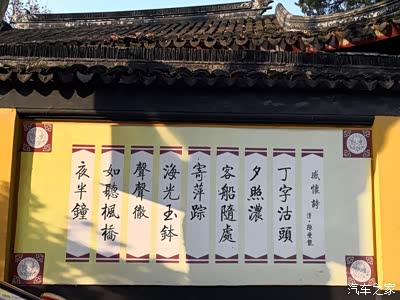 感懷詩
清·陳
丁字沽頭
夕照濃
客船隨處
寄萍踪
海光玉鉢
聲聲徹
如聽楓橋
夜半鐘
汽车之家